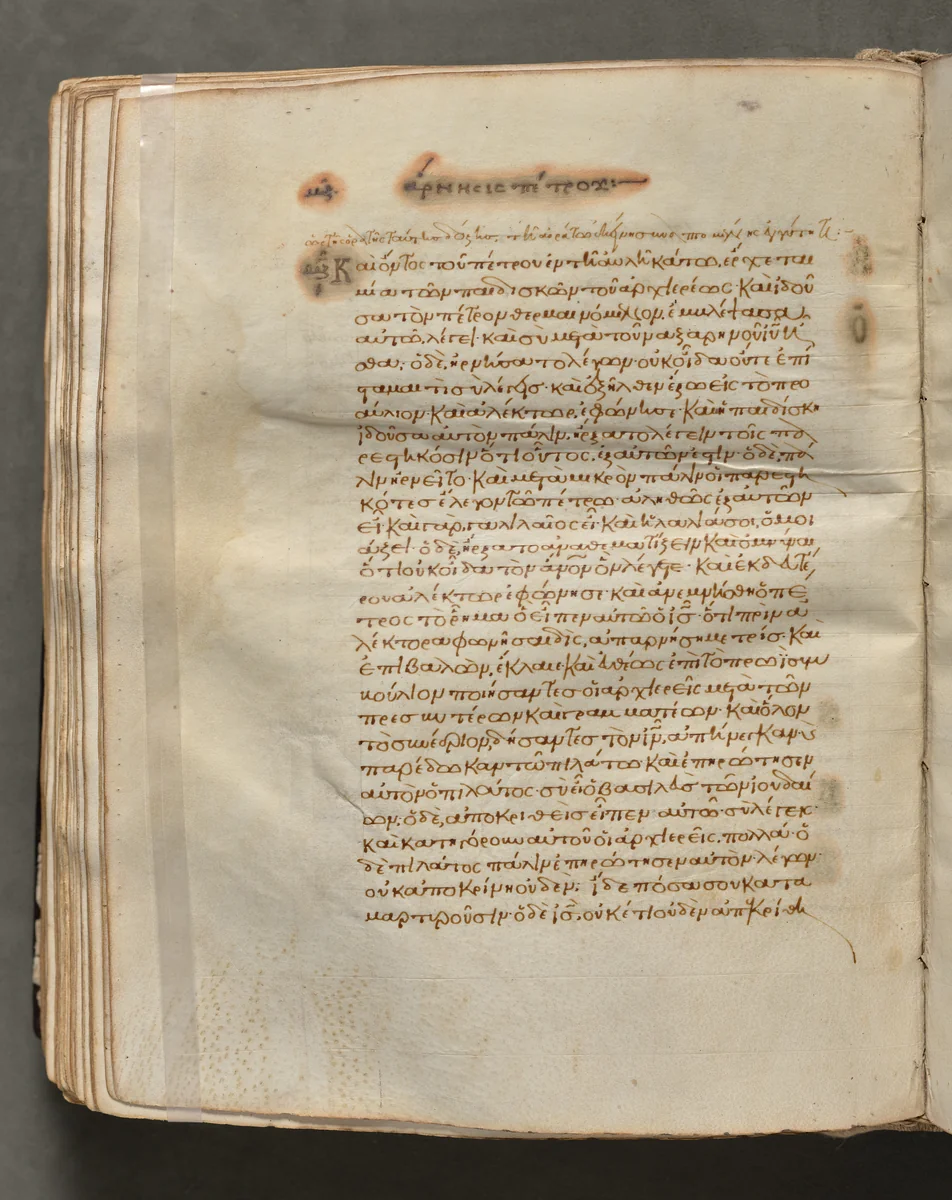 ἄρνησις πέτρου:
Καὶ ὄντος τοῦ πέτρου ἐν τῆ αὐλῆ κάτω, ἔρχεται
μία τῶν παιδισκῶν τοῦ ἀρχιερέως· καὶ ἰδοῦ
σα τὸν πέτρον θερμαινόμενον, ἐμβλέψασα
αὐτῶ, λέγει· καὶ σὺ μετὰ τοῦ ναζαρηνοῦ ἰῦ ἦ
σθα· ὁ δὲ, ἠρνήσατο λέγων· οὐκ οἶδα οὔτε ἐπί
σταμαι τί σὺ λέγεις· καὶ ἐξῆλθεν ἔξω εἰς τὸ προ
αύλιον· καὶ ἀλέκτωρ, ἐφώνησε· καὶ ἡ παιδίσκη
ἰδοῦσα αὐτὸν πάλιν, ἤρξατο λέγειν τοῖς πα
ρεστηκόσιν ὅτι οὗτος, ἐξ αὐτῶν ἐστίν· ὁ δὲ, πά
λιν ἠρνεῖτο· καὶ μετὰ μικρὸν πάλιν οἱ παρεστη
κότες ἔλεγον τῶ πέτρω· ἀληθῶς ἐξ αὐτῶν
εἶ· καὶ γὰρ, γαλιλαῖος εἶ· καὶ ἡ λαλιά σου, ὁμοι
άζει· ὁ δὲ, ἤρξατο ἀναθεματίζειν καὶ ὀμνύναι
ὅτι οὐκ οἶδα τὸν ἄνον ὃν λέγετε· καὶ ἐκ δευτέ
ρου ἀλέκτωρ ἐφώνησε· καὶ ἀνεμνήσθη ὁ πέ
τρος τὸ ῥῆμα ὃ εἶπεν αὐτῶ ὁ ἰς· ὅτι πρὶν ἀ
λέκτορα φωνῆσαι δὶς, ἀπαρνήση με τρίς· καὶ
ἐπιβαλὼν, ἔκλαιε· καὶ εὐθέως ἐπὶ τὸ πρωῒ συμ
βούλιον ποιήσαντες οἱ ἀρχιερεῖς μετὰ τῶν
πρεσβυτέρων καὶ γραμματέων· καὶ ὅλον
τὸ συνέδριον, δήσαντες τὸν ἰν, ἀπήνεγκαν καὶ
παρέδωκαν τῶ πιλάτω· καὶ ἐπηρώτησεν
αὐτὸν ὁ πιλάτος· σὺ εἶ ὁ βασιλεὺς τῶν ἰουδαί
ων· ὁ δὲ, ἀποκριθεὶς εἶπεν αὐτῶ· σὺ λέγεις·
καὶ κατηγόρουν αὐτοῦ οἱ ἀρχιερεῖς, πολλά· ὁ
δὲ πιλάτος πάλιν ἐπηρώτησεν αὐτὸν λέγων·
οὐκ ἀποκρίνη οὐδέν; ἴδε πόσα σου κατα
μαρτυροῦσιν· ὁ δὲ ἰς, οὐκέτι οὐδὲν ἀπεκρίθη